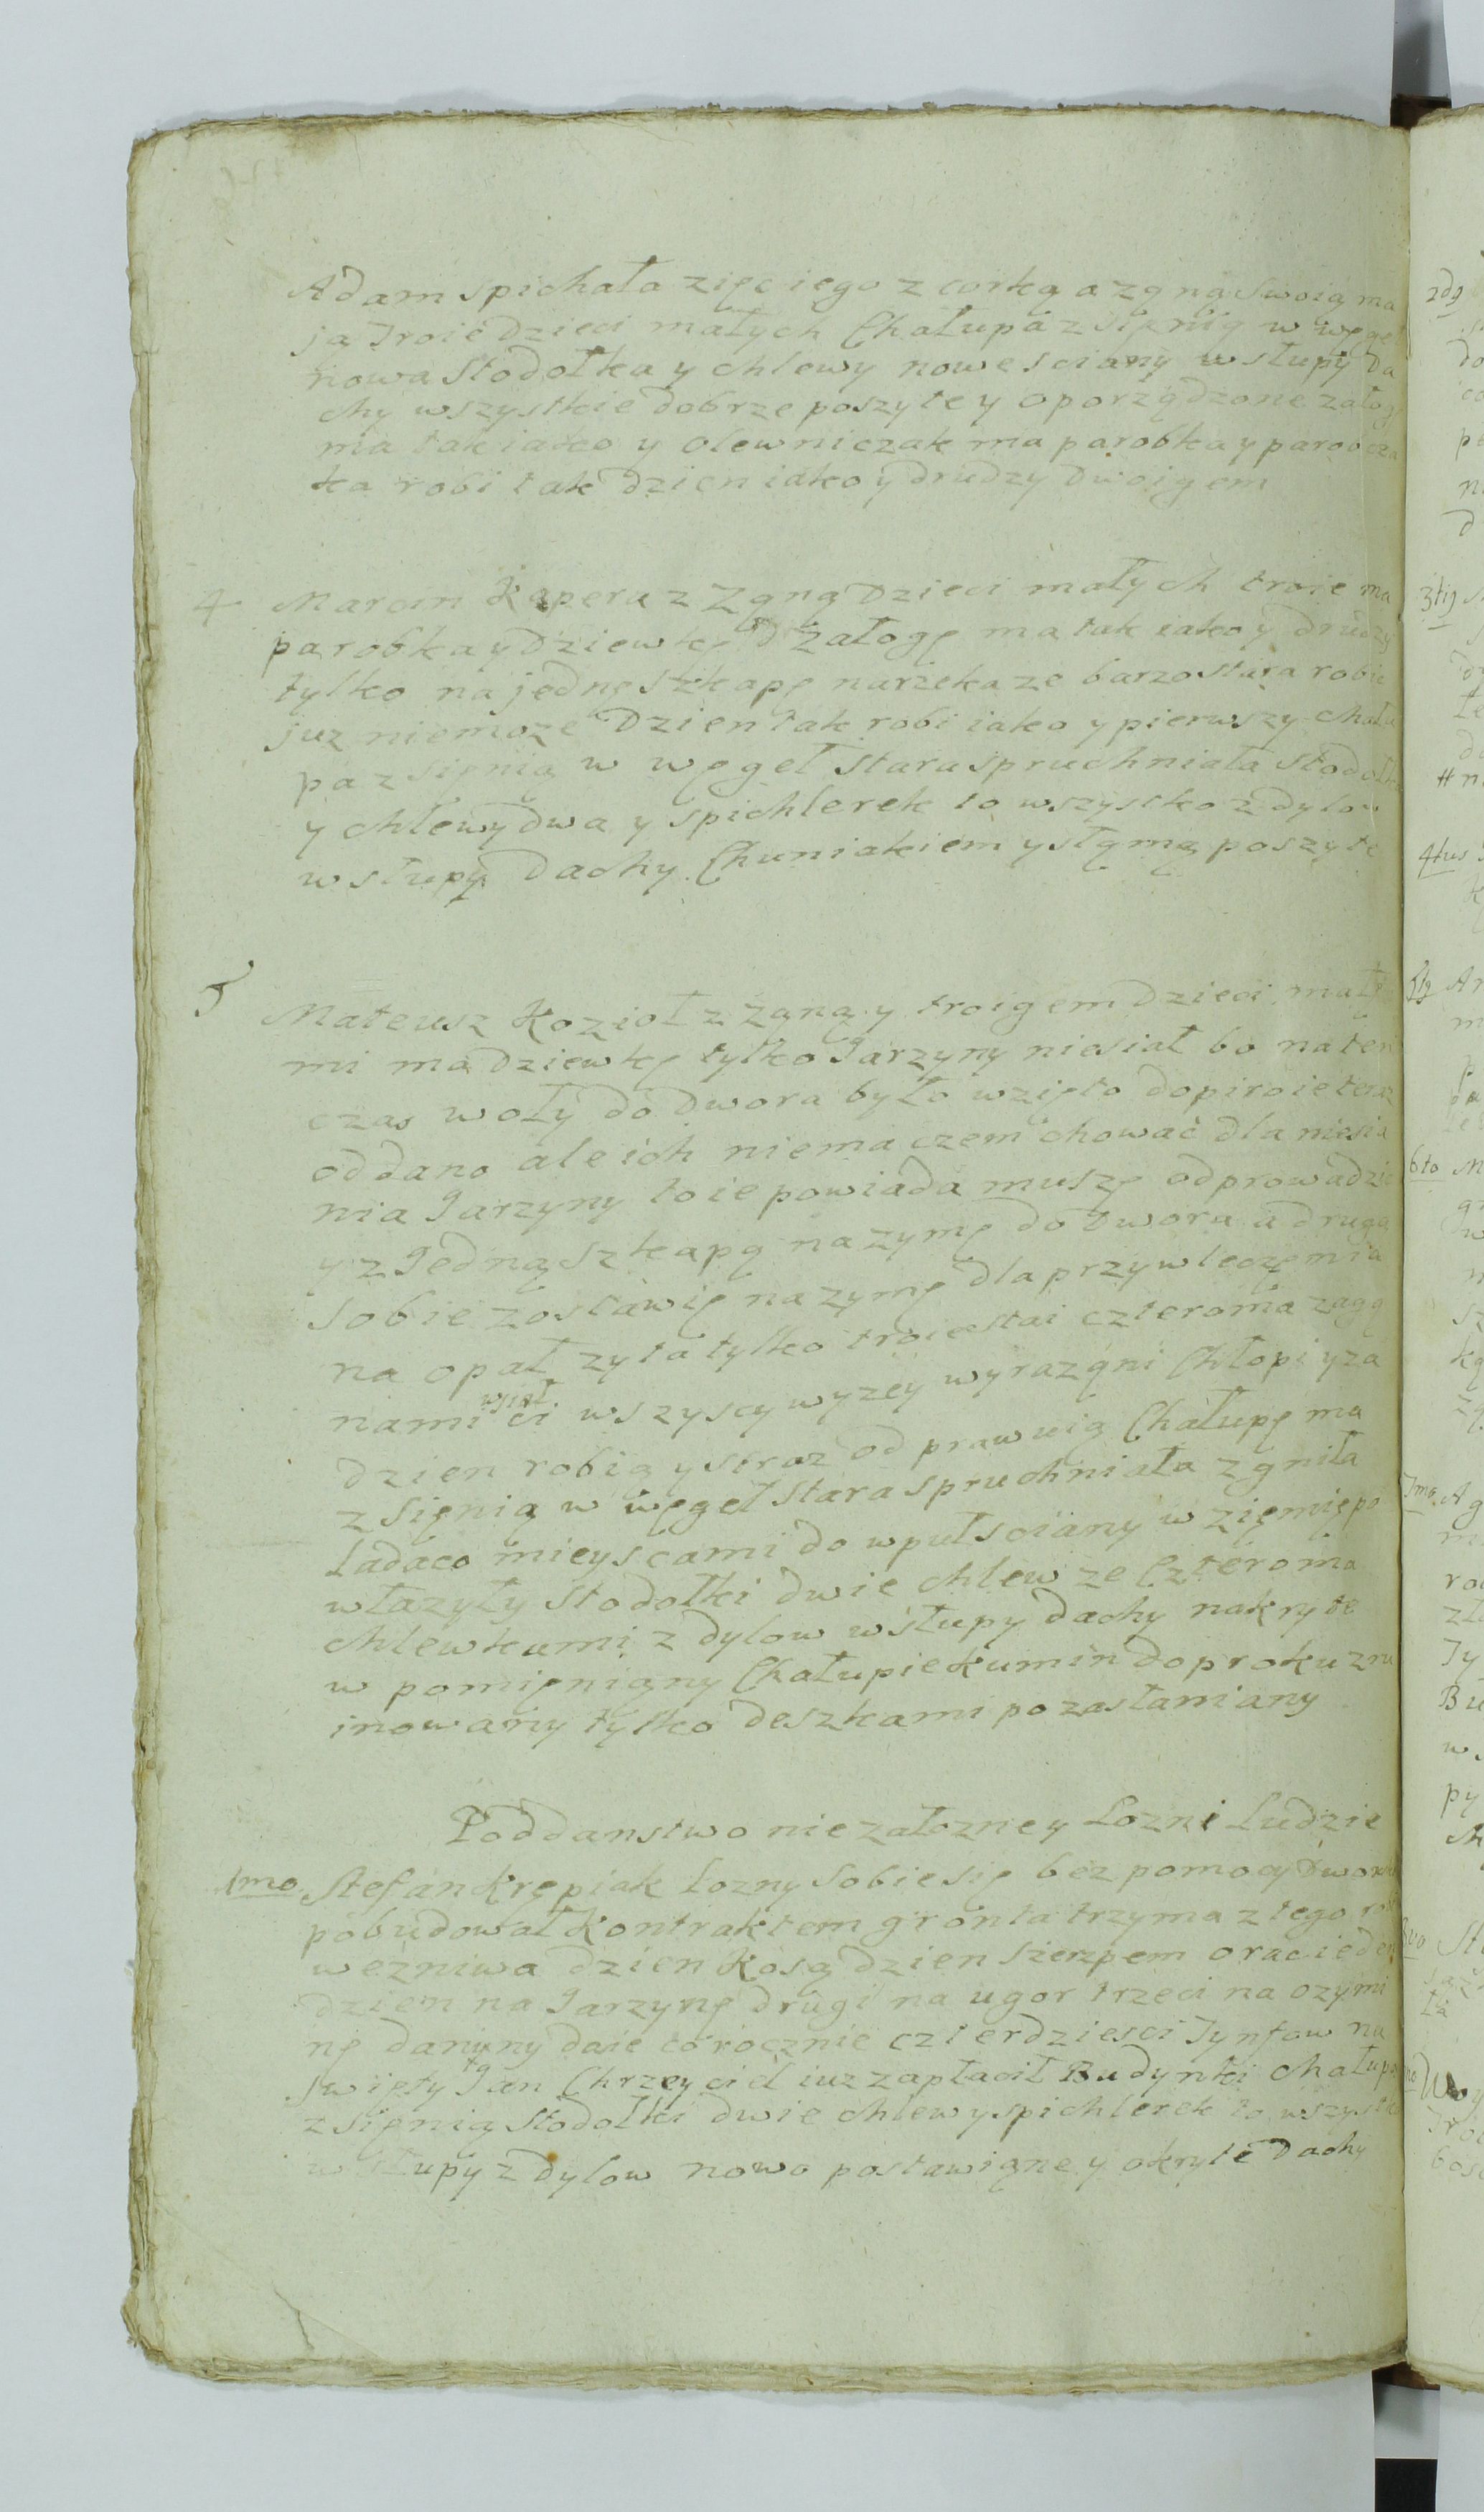 Adam spichała zięc iego z corką a zꝗną swoią ma
ją Troie dzieci małych Chałupa z sięnią w węgeł
nowa stodołka y chlewy nowe sciany w słupy da
chy wszystkie dobrze poszyte y oporządzone załog
ma tak iako y olewniczak ma parobka y parobcza
ka robi tak dzien iako y drudzy dwoigem
4 Marcin Kapera z Zꝗną Dzieci małych troie ma
parobka y Dziewkę załogę ma tak iako y drudzy
tylko na jednę szkapę narzeka ze barzo stara robic
juz niemoze Dzien tak robi iako y pierwszy chału
pa z sięnią w węgeł stara spruchniała stodołka
y chlewy dwa y spichlerek to wszystko z dylow
w słupy dachy Chuniakiem y słꝗmą poszyte
5 Mateusz Kozioł z zꝗną y troigem dzieci mały
mi ma dziewkę tylko Jarzyny niesiał bo na ten
czas woły do Dwora było wzięto dopiro ie teraz
oddano ale ich niema czem chować dla niesia
nia Jarzyny to ie powiada muszę odprowadzic
y z Jedną szkapą na zymę do Dwora a drugą
sobie zostawię na zymę dla przywleczęnia
na opał zyta tylko troie stai czteroma zagꝗ
nami ci wszyscy wyzey wyrazꝗni Chłopi y za
dzien robią y straz odprawuią Chałupę ma
z sięnią w węgeł stara spruchniała zgniła
ladaco mieyscami do wpuł sciany w ziemię po
włazyły stodołki dwie chlew ze Czteroma
chlewkami z dylow w słupy dachy nakryte
w pomięniąny Chałupie kumin do proku zru
inowany tylko deszkami pozasłaniany
Poddanstwo niezałozne y Lozni Ludzie
1mo Stefan Krępiak Lozny sobie się bez pomocy Dwora
pobudował Kontraktem gronta trzyma z tego robi
we zniwa dzien Kosą dzien sierzpem orac ieden
dzien na Jarzynę drugi na ugor trzeci na ozymi
nę daniny daie corocznie czterdziesci Tynfow na
swięty Jan Chrzeyciel iuz zapłacił Budynki chałupa
z sięnią stodołki dwie chlewy spichlerek to wszystko
w słupy z dylow nowo postawiąne y okryte Dachy